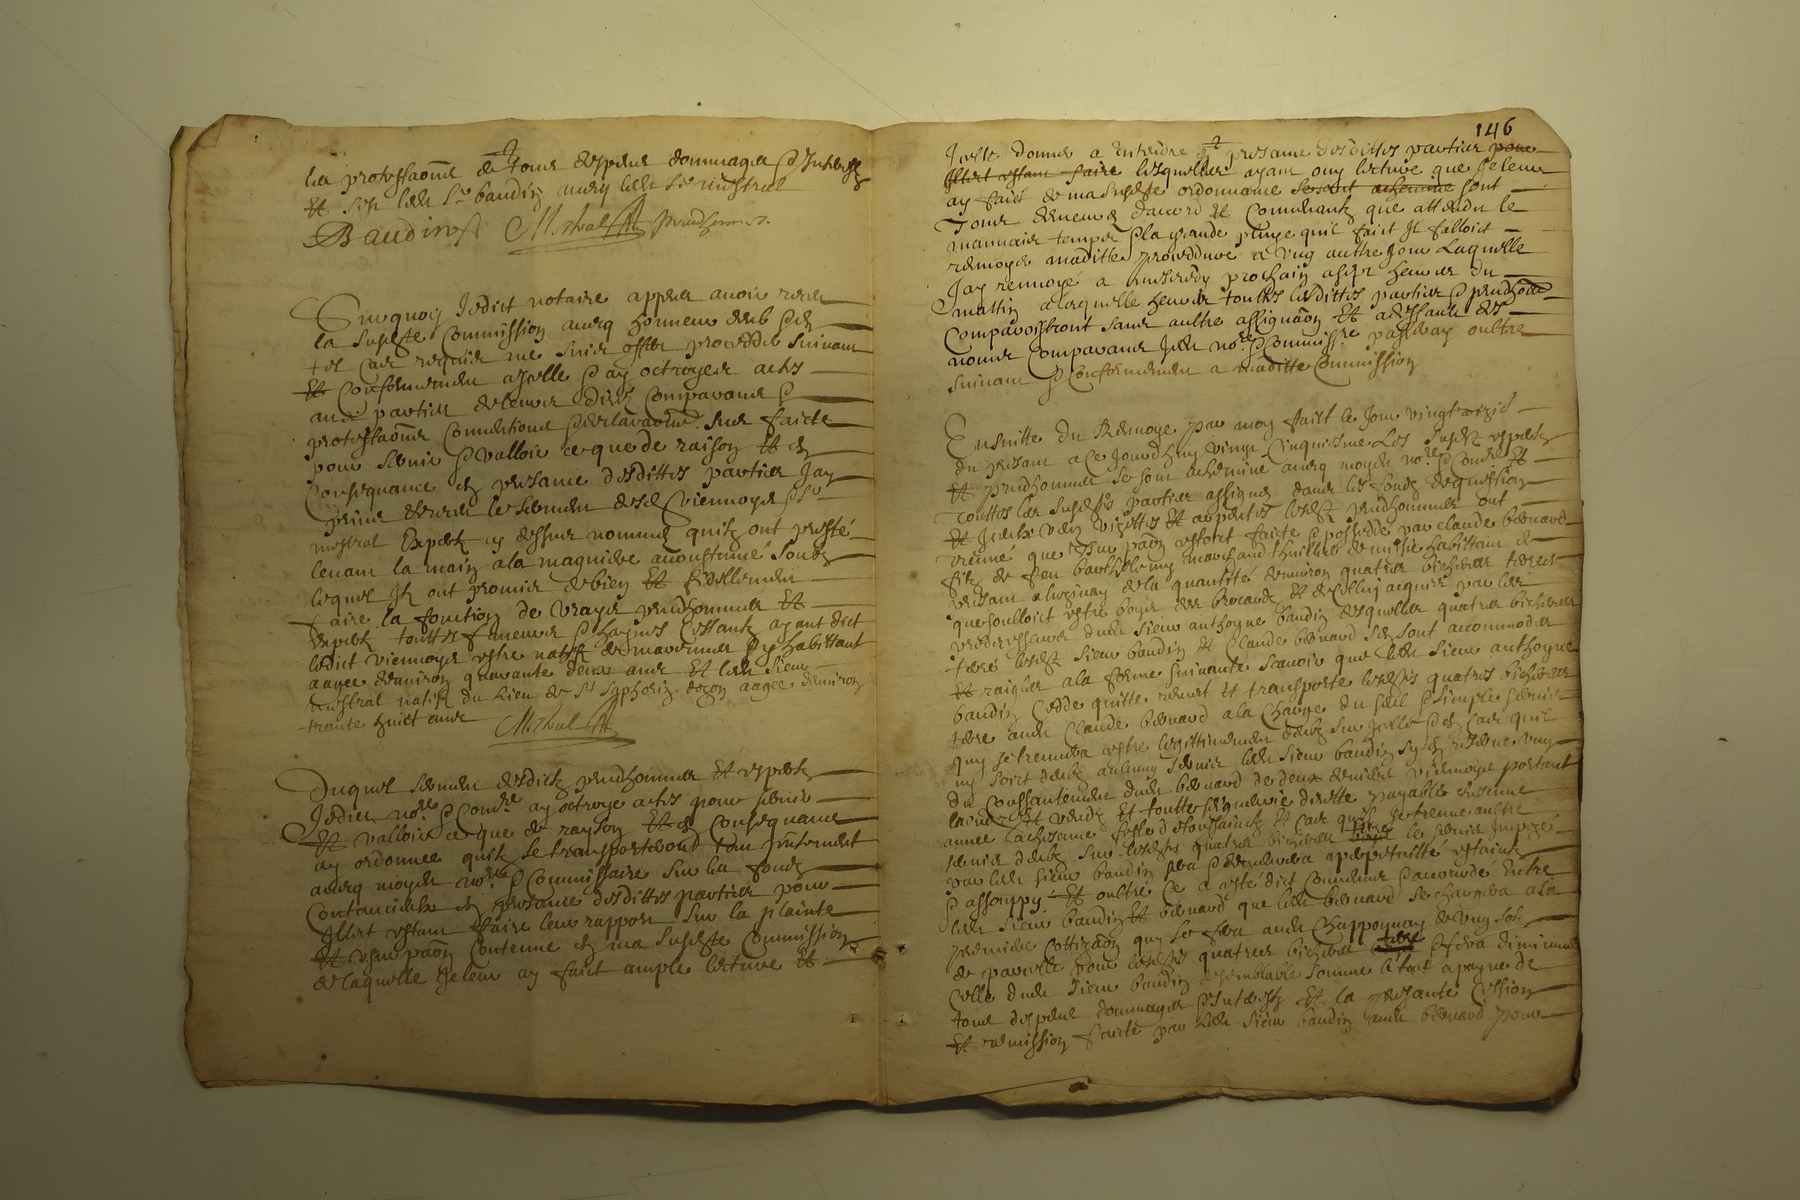 les protestaõns de tous despens dommages & Interestz
Et sest ledt Sr baudin avecq ledt Sr mistral
Baudin Mistral prudhom̄e
Surquoy Jedict notaire appres avoir receu
la susdte Commission avecq honneur deub & en
tel cas requis me suis offert proceder suivant
Et Conformement a jcelle & ay octroyer actes
aux parties de leurs dires Comparans &
protestaõns Conventions & declaraõns sur faicte
pour servir & valloir ce que de raison Et en
Consequance en presance desdittes parties Jay
prins & receu le serment desd Viennoys & Sr
mistral Expertz cy dessus nommes quilz ont presté
levant la main a la magniere acoustumé soubz
lequel Jlz ont promis de bien Et fidellement
faire la fonction de vrays prudhommes Et
expertz touttes faveurs & haynes Cessants ayant dict
ledict viennoys estre natif de mavennes & y habittant
aagee denviron quarante deux ans Et ledt sieur
mistral natif du Lieu de St Syphorin dozon aagee denviron
trante huict ans Mistral
Duquel serment desdictz prudhommes Et expertz
Jedict nore & Comre ay octroye actes pour servir
Et valloir ce que de rayson Et en Consequance
ay ordonnee quilz se transporteront tous jncessament
avecq moydt nore & Commissaire sur les fondz
Contancieulx en presance desdittes parties pour
Jllect estant faire leur rapport sur la plainte
Et usurpaõn Contenue en ma susdte Commission
de laquelle Je leur ay faict ample lecture Et
146
Jcelle donner a entendre en presance desdittes parties pour
Jllect estant faire lesquelles ayant ouy lecture que Je leur
ay faict de ma susdte ordonnance se sont achemine sont
Tous demeures dacord Et Convenantz que attendu le
mauvais temps & la grande pluye quil faict Jl falloict
renvoyer maditte procedure a ung aultre Jour Laquelle
Jay renvoyé a mescredy prochain a sept heures du
mattin a laquelle heure touttes lesdittes parties & prudhom̄es
Comparoistront sans aultre assignaõn Et a deffault des
nons Comparans Jedt nore & Commissre passeray oultre
suivant & Conformement a maditte Commission
Ensuitte du Renvoye par moy faict le Jour vingt
du presant a Ce Jourdhuy vingt Cinquiesme Les susdtz expertz
Et prudhommes se sont achemine avecq moydt nore & Comre Et
touttes les susdtes parties assignes dans les fondz de question
Et Jceulx veu visittes Et arpentes lesdtz prudhommes ont
treuvé que Jsurpaõn estoit faicte & possedde par claude bernard
filz de feu barthelemy marchand de habittant en
presant a luzinay de la quantité denviron quatres bicherees terres
que soulloict estre boys des brocardz Et de celluy acquise par les
predecesseurs dudt sieur anthoyne baudin desquelles quatres bicherees
terre lesdtz sieur baudin Et Claude bernard se sont accommodes
Et raigles a la forme suivante scavoir que ledt sieur anthoyne
baudin Cedde quitte remet Et transporte lesdtes quatres bicherees
terre audt Claude bernard a la Charge du seul & simple servis
quy se treuvera estre legittimement deubz sur jcelle & en Cas quil
ny soict deubz aulcung servis ledt sieur baudin sy en reserve ung
du Consantement dudt bernard de deux deniers viennoys portant
laoudz Et vendz Et toutte seigneurie directe payable chascune
annee a chascune feste de toussainctz Et Cas quil se treuve aultre
servis deubz sur lesdtes quatres bicherees terre le servis Jmposé
par ledt sieur baudin sera & demeurera a perpetuitté estainctz
& assouppy Et oultre Ce a este dict Convenus & accordé Entre
ledt sieur baudin Et bernard que ledt bernard se chargera a la
premiere Cottizaõn quy se fera audt Chappponnay de ung solz
de parcelle pour lesdtes quatres bicherees terre & sera diminuee
Celle dudt sieur baudin de semblable somme le tout a payne de
tous despens dommages & Jnterestz Et la presante Cession
Et remission faicte par ledt sieur baudin audt bernard pour